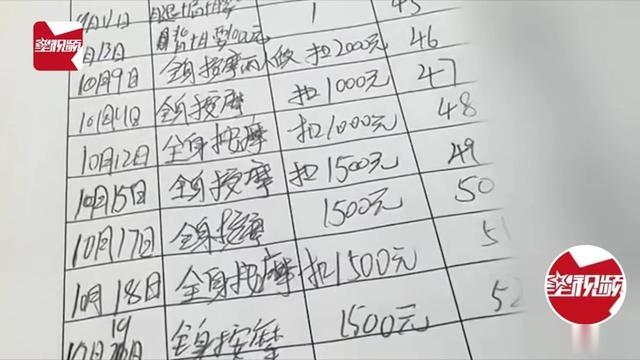 10月9日 全身按摩两人做 扣2000元 46
10月11日 全身按摩 扣1000元 47
10月12日 全身按摩 扣1000元 48
10月15日 全身按摩 扣1500元 49
10月17日 全身按摩 1500元 50
10月18日 全身按摩 扣1500元
全身按摩 1500元
视频
视频